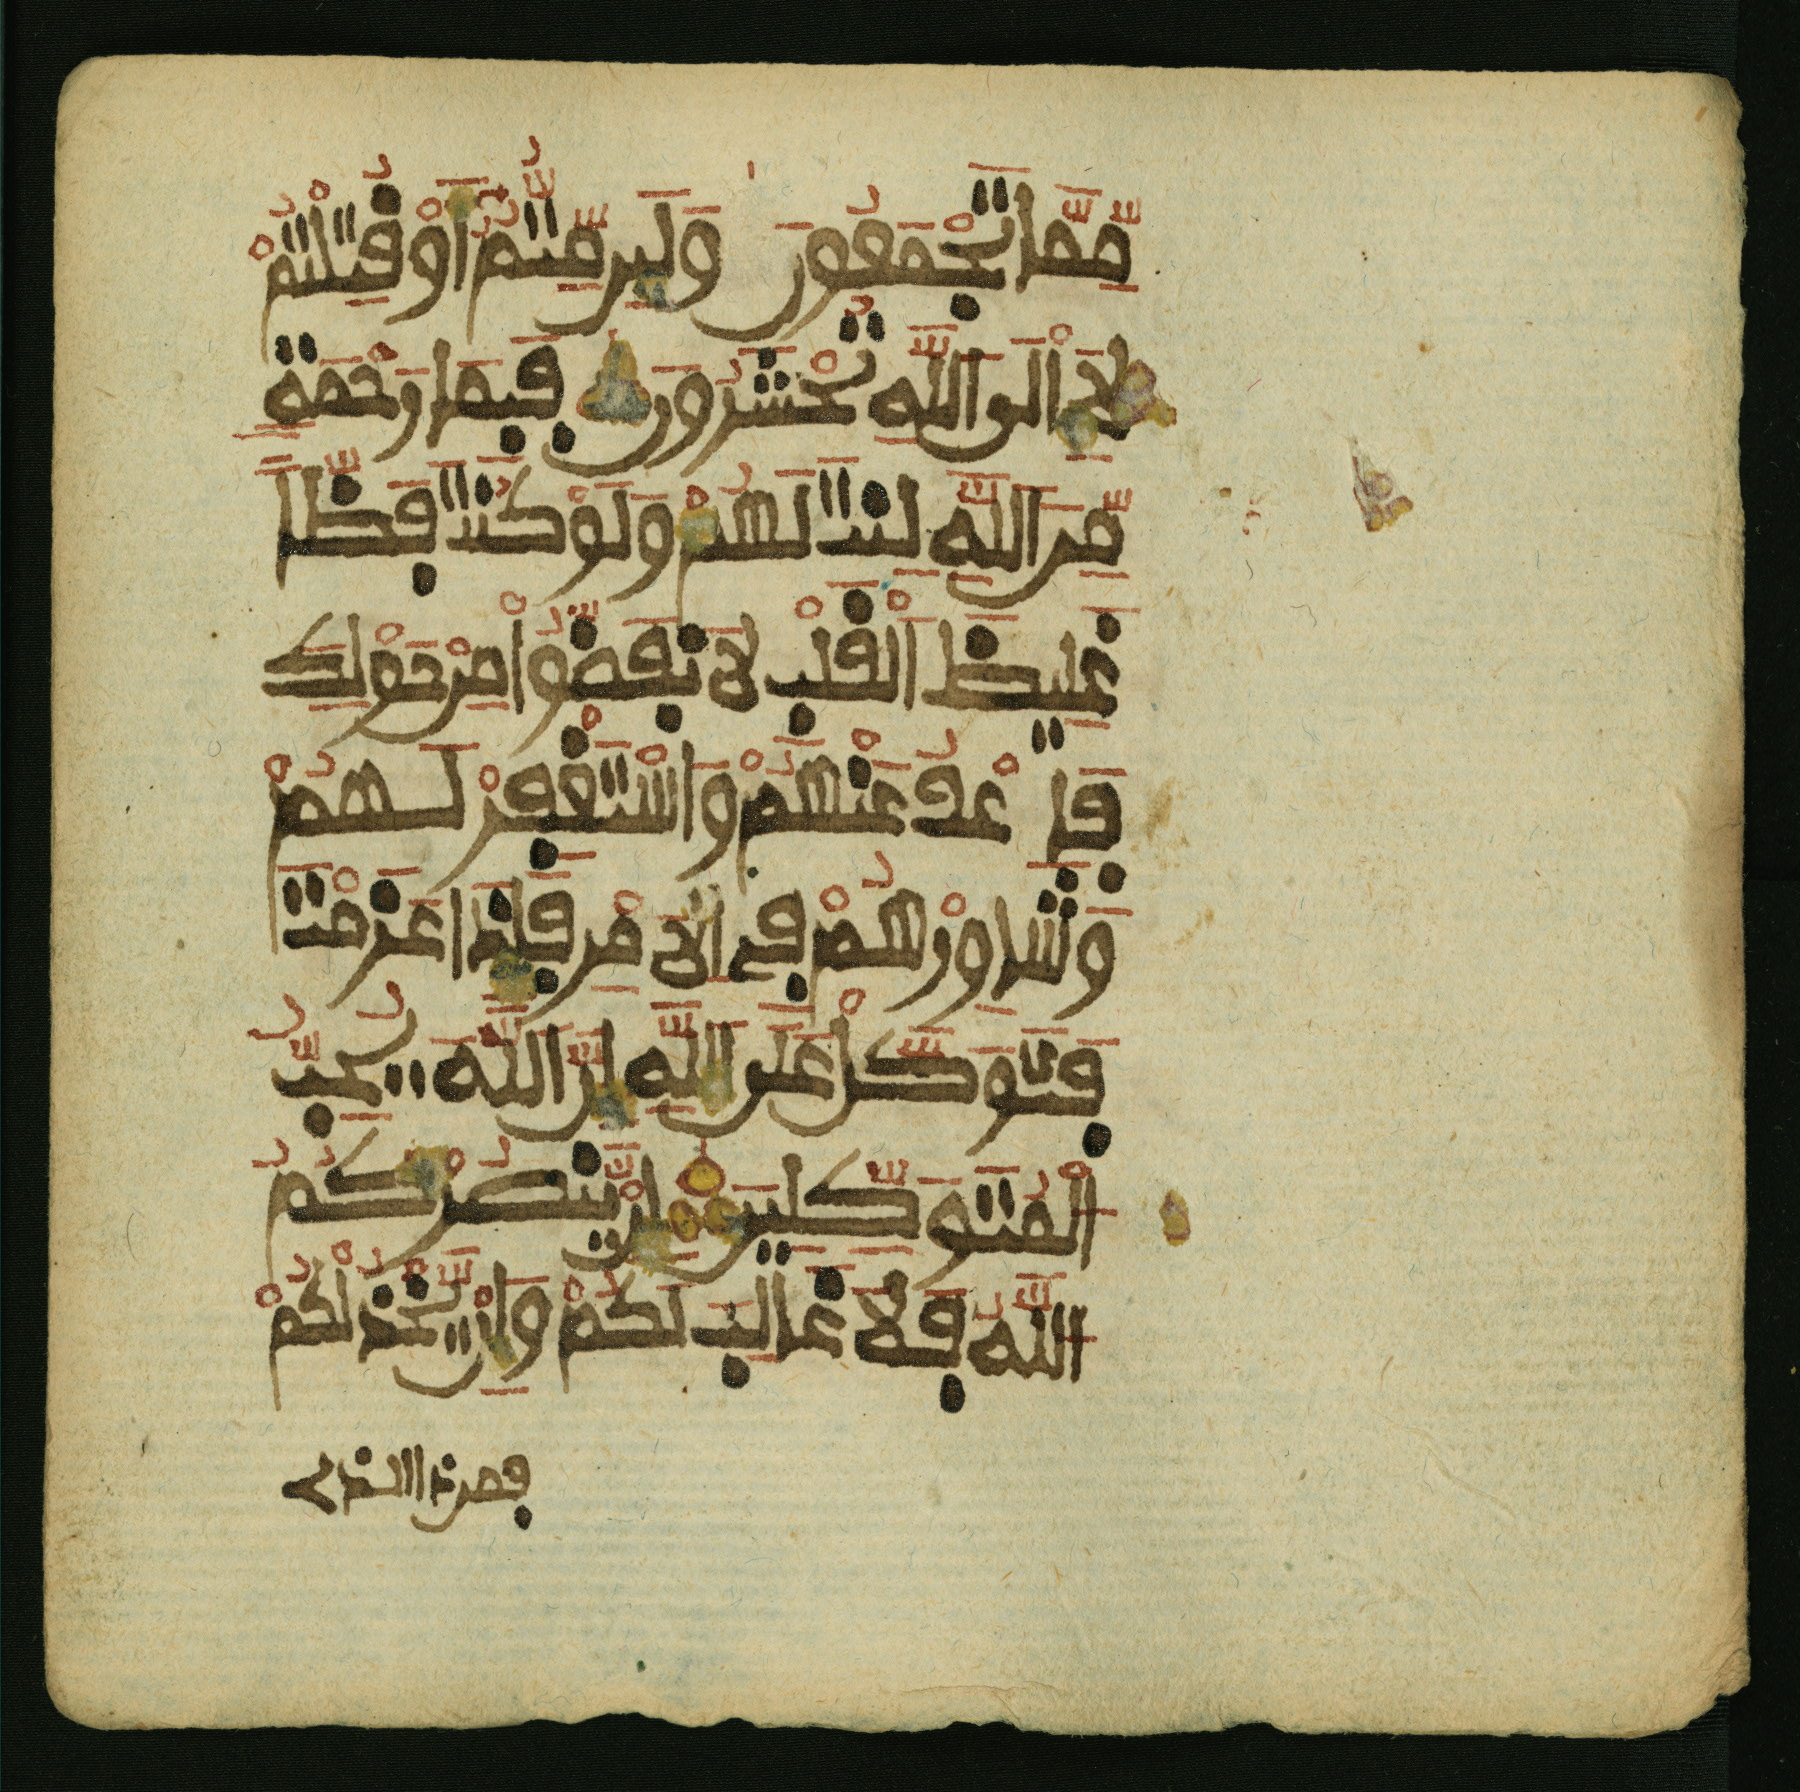 مِّمَّا تَجْمَعُونَ وَلَيِن مِّتُّمُ أَوْ قُتِلْتُمْ
لَإِلَى اللَّهِ تُحْشَرُونَ فَبِمَا رَحْمَةٍ
مِّنَ اللَّهِ لِنتَ لَهُمْ وَلَوْ كُنتَ فَظًّا
غَلِيظَ الْقَلْبِ لَانفَضُّوا مِنْ حَوْلِكَ
فَاعْفُ عَنْهُمْ وَاسْتَغْفِرْ لَهُمْ
وَشَاوِرْهُمْ فِي الَامْرِ فَإِذَا عَزَمْتَ
فَتَوَكَّلْ عَلَى اللَّهِ إِنَّ اللَّهَ يُحِبُّ
الْمُتَوَكِّلِينَ إِنْ يَنصُرْكُمُ
اللَّهُ فَلَا غَالِبَ لَكُمْ وَإِنْ يَخْذُلْكُمْ
فمن ذا الذي